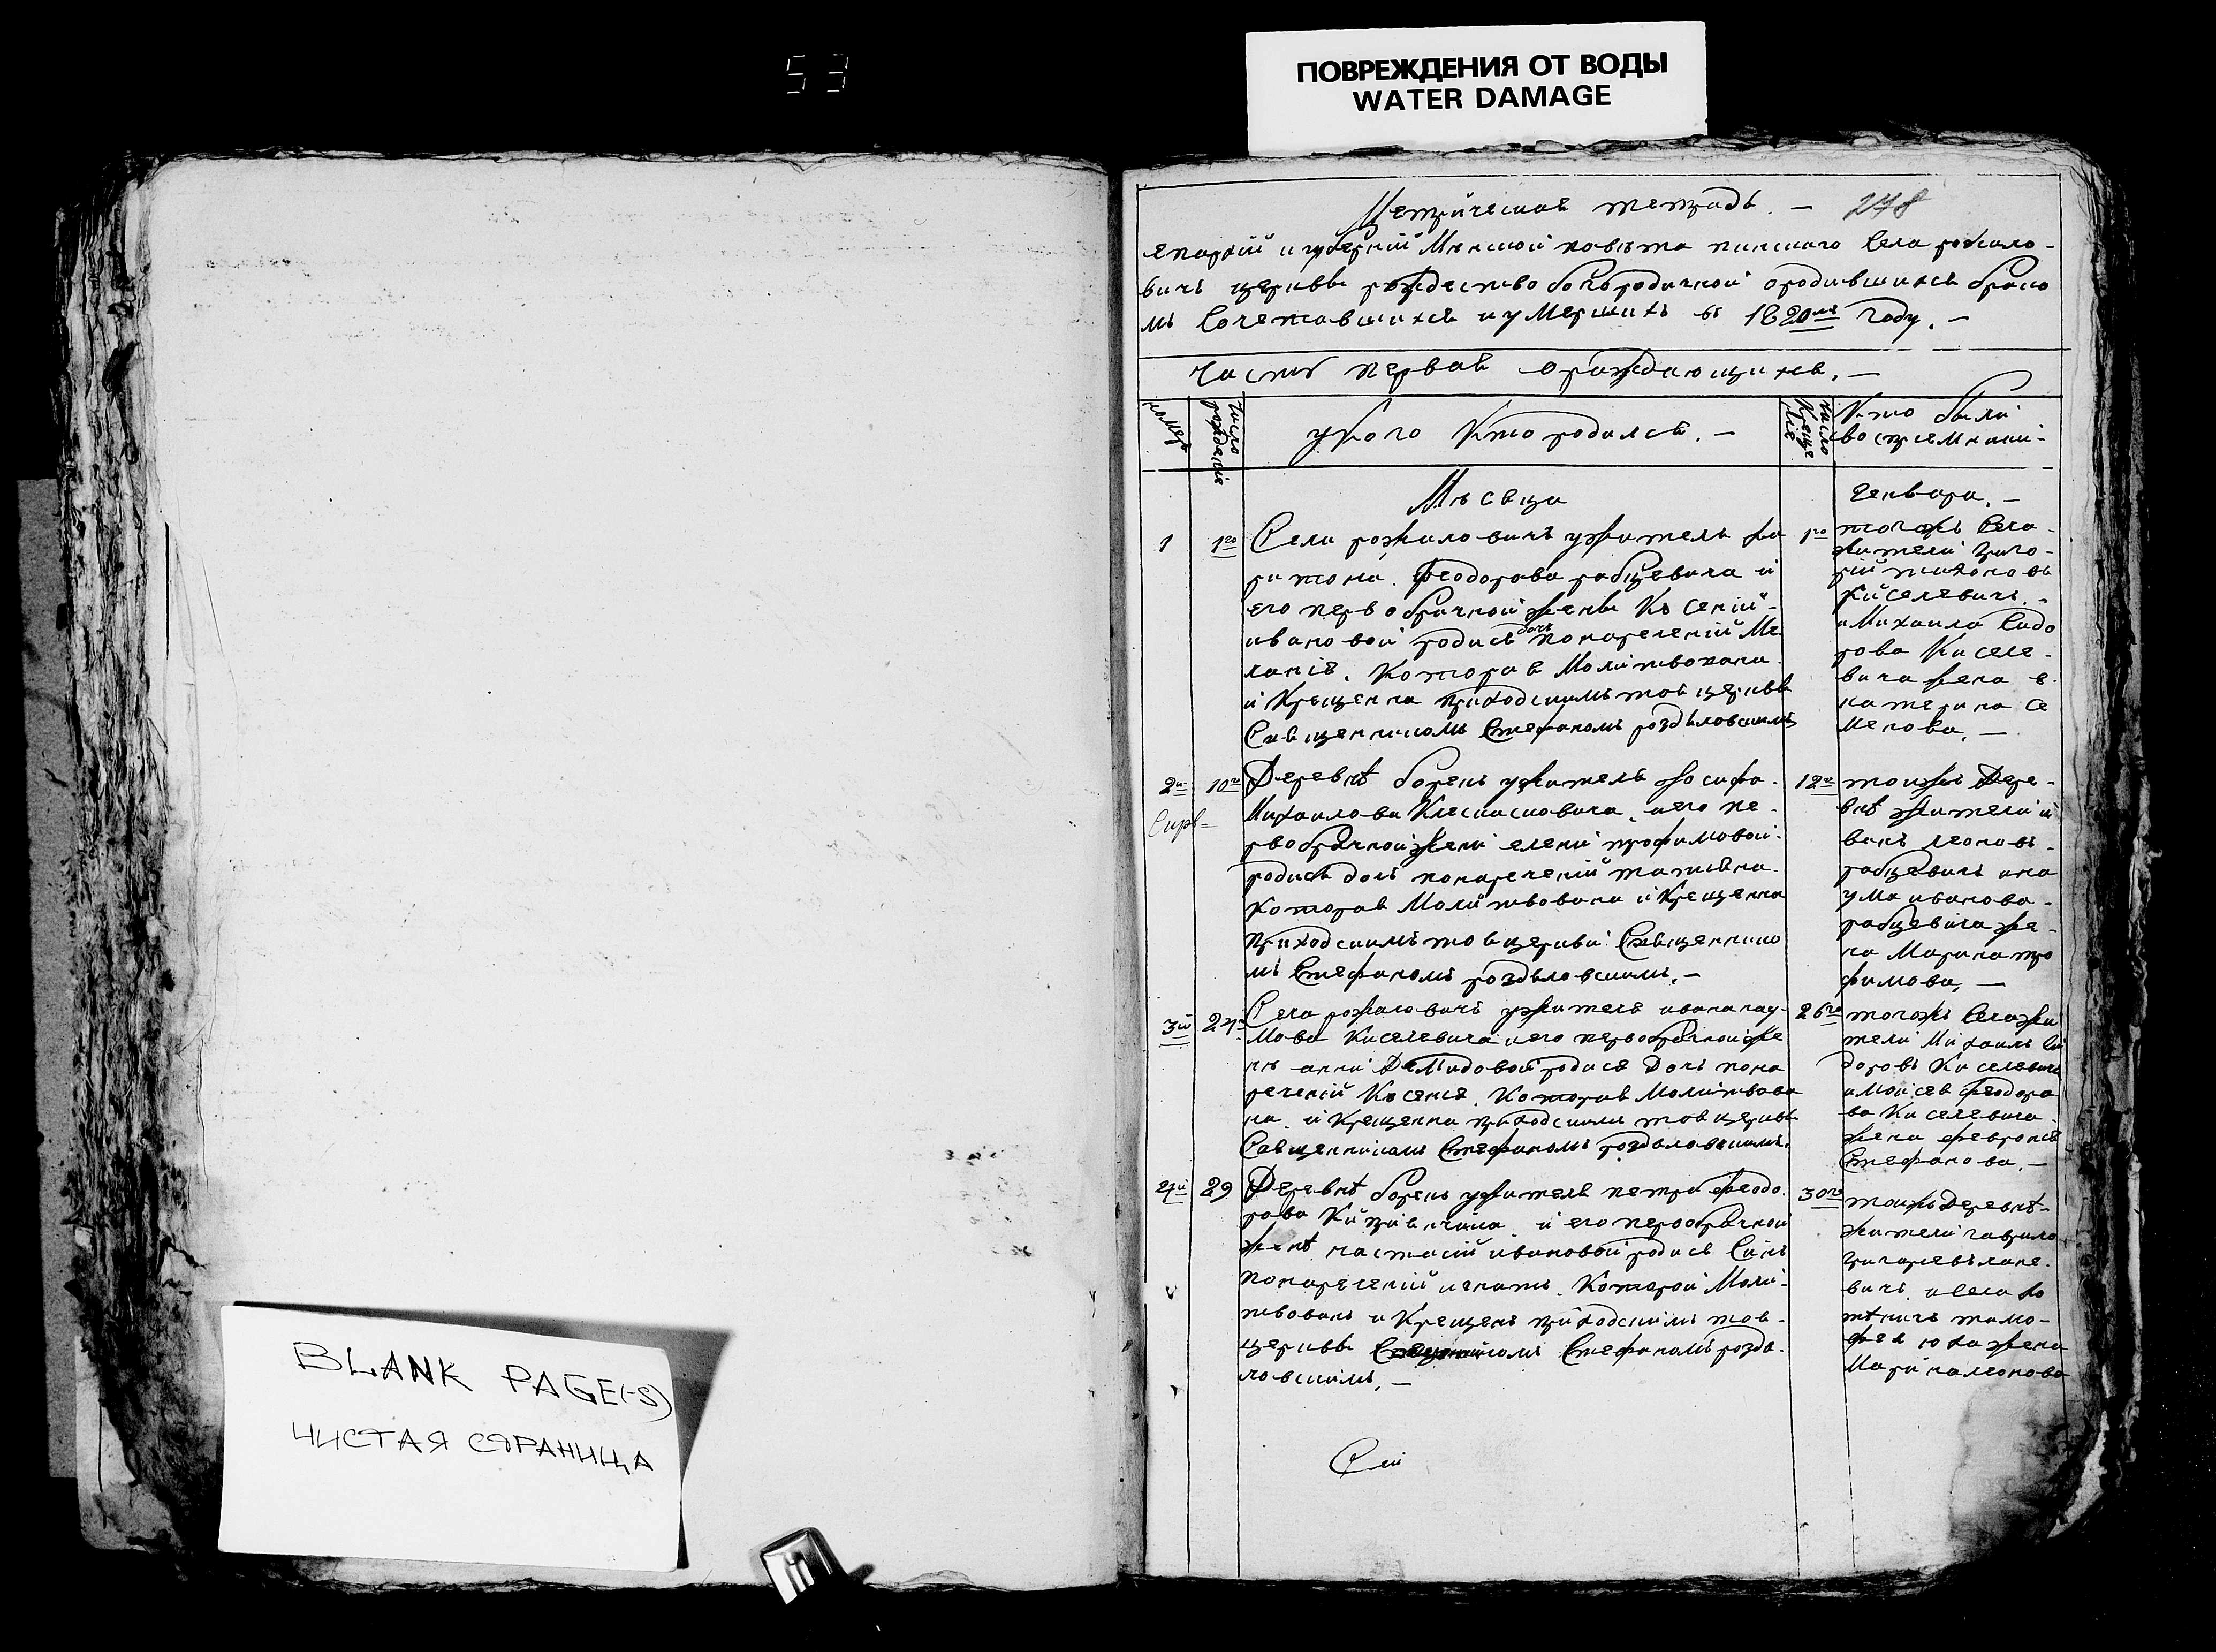 53
ПОВРЕЖДЕНИЯ ОТ ВОДЫ
WATER DAMAGE
Метрическая тетрадь. — 248
епархій и губерній Минской повѣта пинского Села рожало-
вичъ церквы рождество богъродичной ородившихся брако
мъ Сочетавшихся и умершихъ въ 1820мъ году. —
часть первая ораждающихся. —
номеръ
число рождене
укого Кто родился. —
число Креще нія
Кто были
восприемники-
Мѣсяца
генваря. —
1
1го
Села рожаловичъ ужителя ха
ритона Феодорова рабцевича и
его первобрачной жены Ксеній-
ивановой родися дочь понаречений Ме
ланія. Которая Молитвована
и Крещенна приходскимъ тоя церквы
Священникомъ Стефаномъ роздяловскимъ
1го
тогожъ Села-
жители григо-
рій тихоновъ
Киселевичъ.-
и Михаила Сидо
рова Киселе-
вича жена е-
катерина Се
менова. —
2й
10го
Деревнѣ борень ужителя Иосифа-
Михаилова его пе-
рвобрачной жени елени трофимовой-
родися дочь понаречений татияна-
Которая Молитвована и Крещенна
приходскимъ тоя церкви Священнико
мъ Стефаномъ роздяловскимъ. —
12го
тоижъ Дере-
внѣ жители и
ванъ леоновъ-
рабцевичъ ина
ума иванова-
рабцевича же-
на Марина тро
фимова. —
3й
24
Села рожаловичъ ужителя ивана нау-
мова Киселевича иего первобрачной же
нѣ анни Демидовой родися Дочь пона
речений Ксенія. Которая Молитвова
на и Крещенна приходскимъ тоя церквы
Священникомъ Стефаномъ роздяловскимъ.
26го
тогожъ Села жи
тели Михаилъ Си
доровъ Киселевичъ
и Моисея феодоро
ва Киселевича
жена феврония
Стефанова. —
4й
29
Деревнѣ борень ужителя петра феодо-
рова и его первобрачной
женѣ настасій ивановой родися Синъ
понаречений игнатъ. Которой Моли-
твованъ и Крещенъ приходскимъ тоя-
церквы Священникомъ Стефаномъ роздя-
ловскимъ. —
30го
тоижъ Деревнѣ-
жители гаврило
григориевъ
вичъ. и Села хо
тѣничъ тимо-
фея жена
Марина леонова
BLANK PAGE(-S)
ЧИСТАЯ СТРАНИЦА